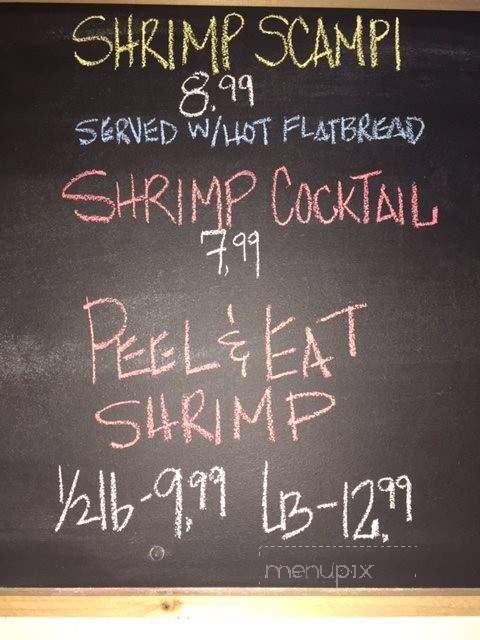 SHRIMP SCAMPI
8.99
SERVED W/HOT FLATBREAD
SHRIMP COCKTAIL
7.99
PEEL & EAT
SHRIMP
1/2 lb - 9.99 LB - 12.99
menupix